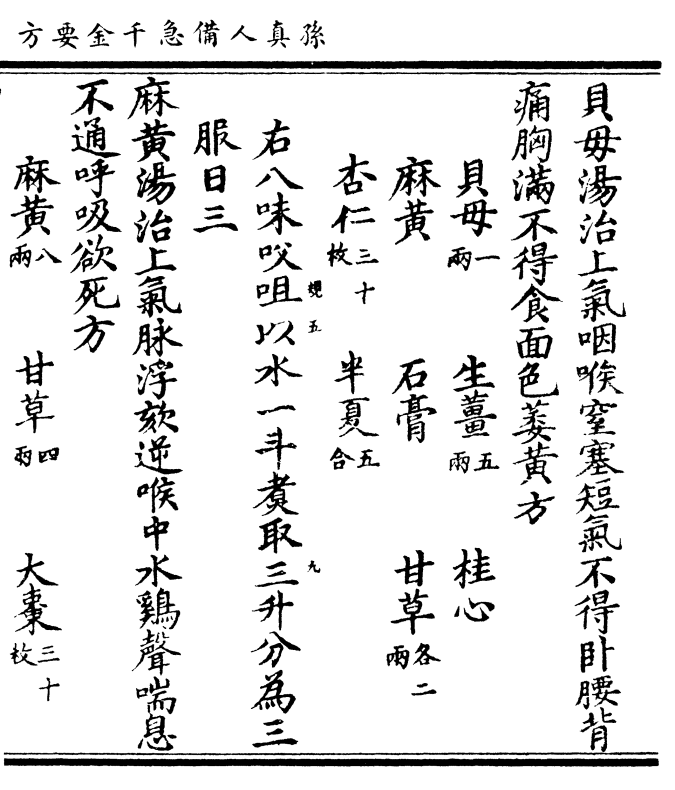 孫真人備急千金要方
貝母湯治上氣咽喉窒塞短氣不得卧腰背
痛胸滿不得食面色萎黃方
貝母一兩　生薑五兩　桂心
麻黃　石膏　甘草各二兩
杏仁三十枚　半夏五合
右八味㕮咀以水一斗煑取三升分為三
服日三
麻黃湯治上氣脉浮欬逆喉中水鷄聲喘息
不通呼吸欲死方
麻黃八兩　甘草四兩　大棗三十枚